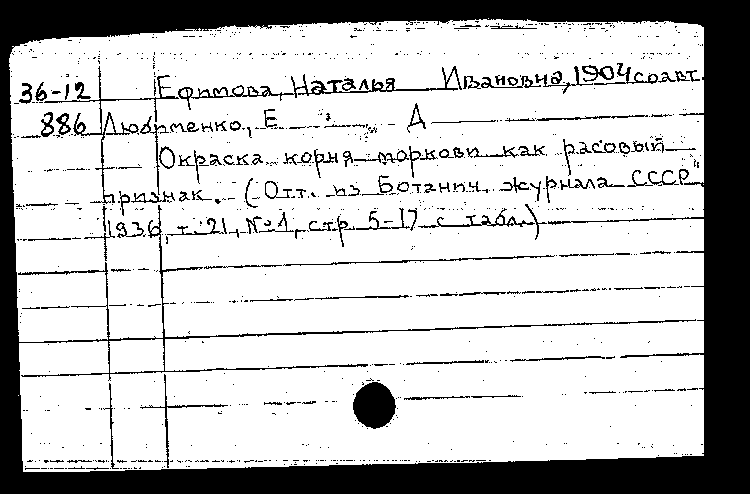 36-12 Ефимова, Наталья Ивановна, 1904 соавт.
886 Любименко, Е Д
Окраска корня моркови как расовый
признак. (Отт. из Ботанич. журнала СССР"
1936, т. 21, №1, стр. 5-17 с табл.)